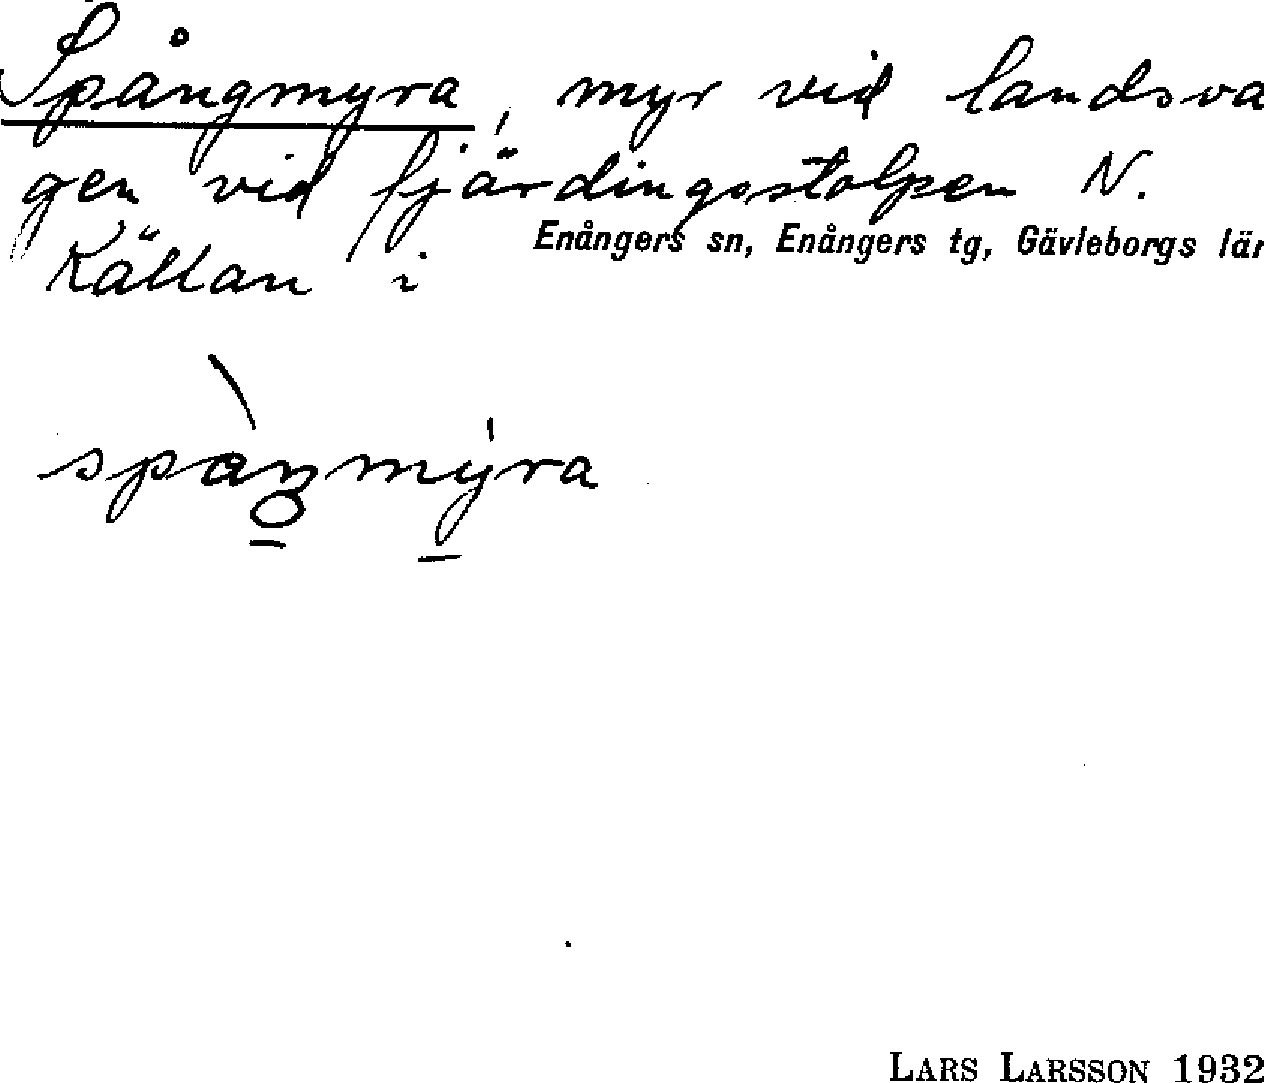 Spångmyra, myr vid landsva
gen vid fjärdingsstolpen N.
Källan i
Enångers sn, Enångers tg, Gävleborgs lär
spaŋmýra
LARS LARSSON 1932